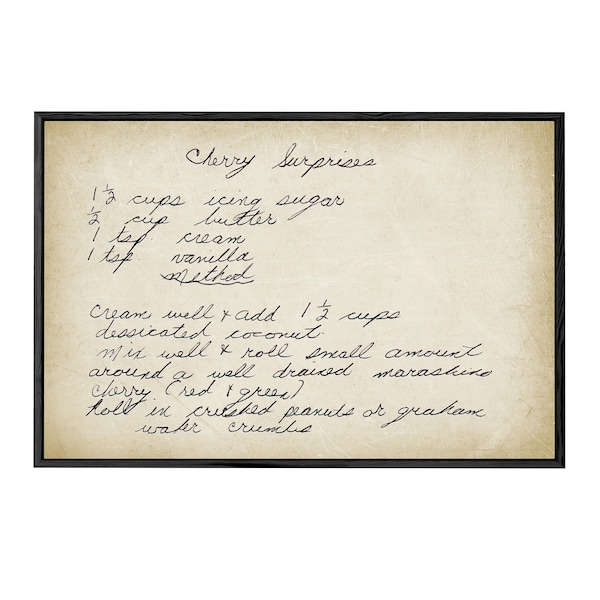 Cherry Surprises
1 1/2 cups icing sugar
1/2 cup butter
1 tsp cream
1 tsp vanilla
Method
Cream well & add 1 1/2 cups
dessicated coconut.
Mix well & roll small amount
around a well drained marashino
cherry (red & green)
Roll in crushed peanuts or graham
wafer crumbs